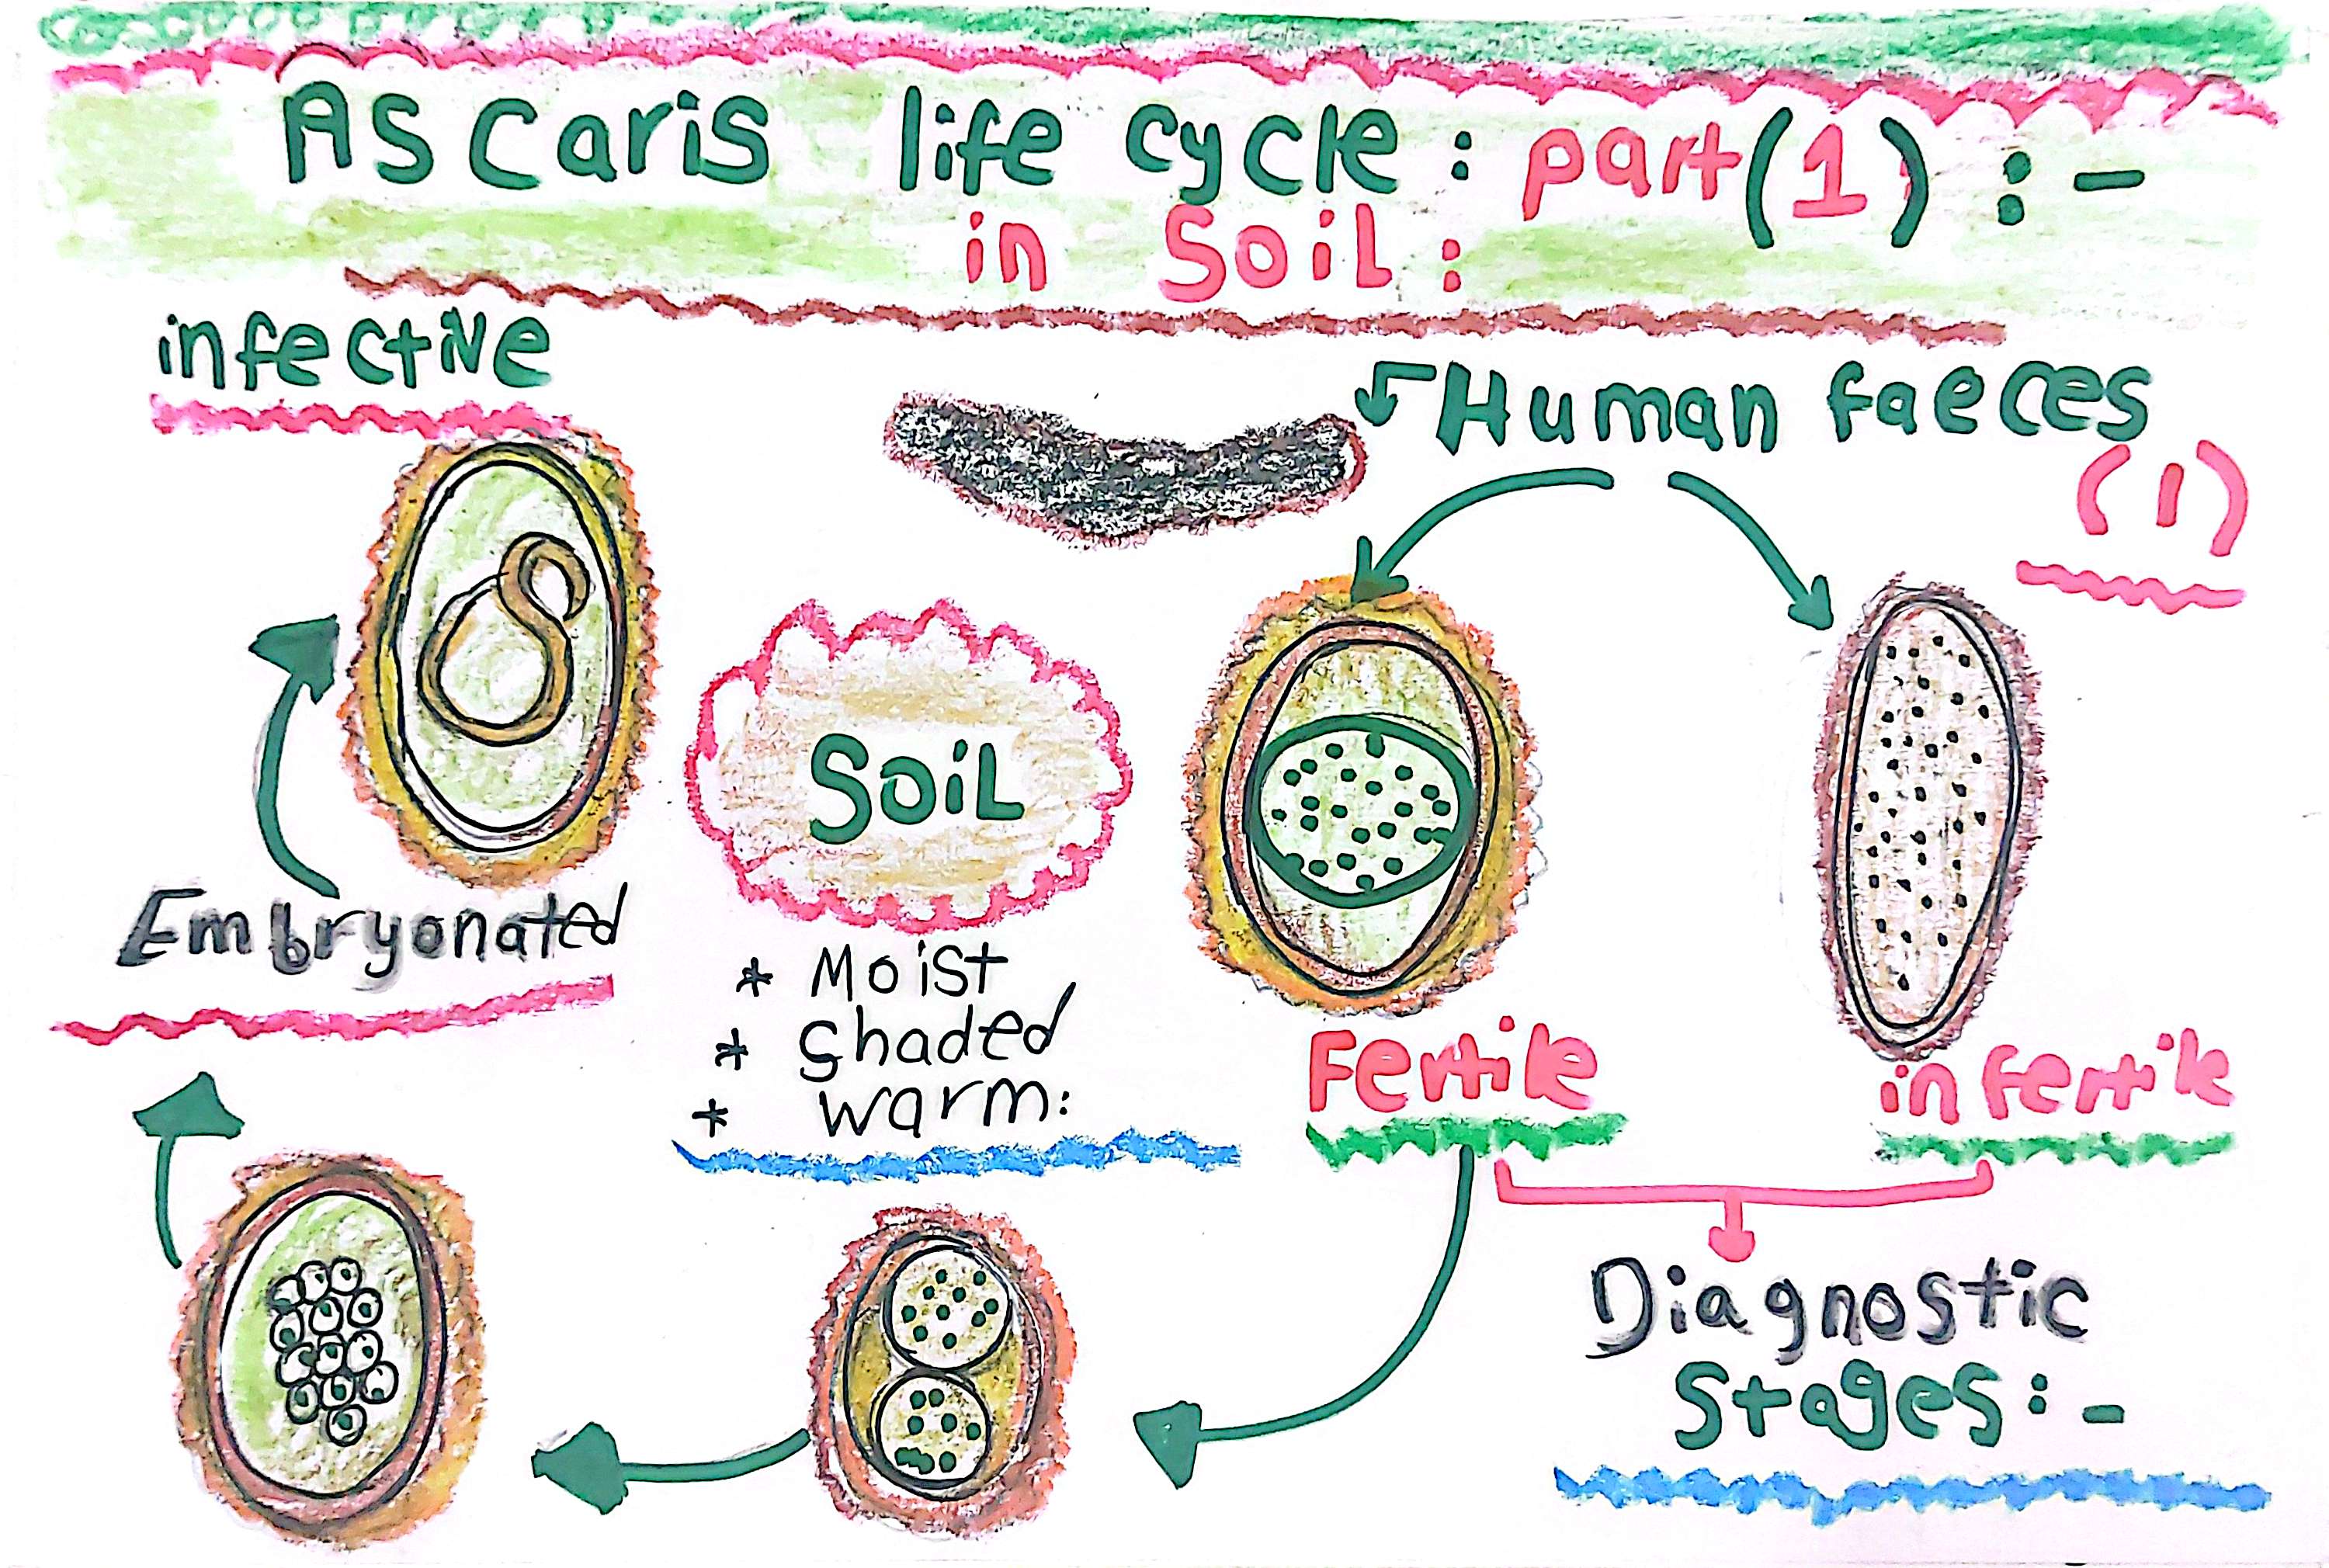 Ascaris life cycle : part (1) :-
in Soil :
infective
Human faeces
(1)
Soil
Embryonated
* Moist
* shaded
* warm:
Fertile
infertile
Diagnostic
Stages :-